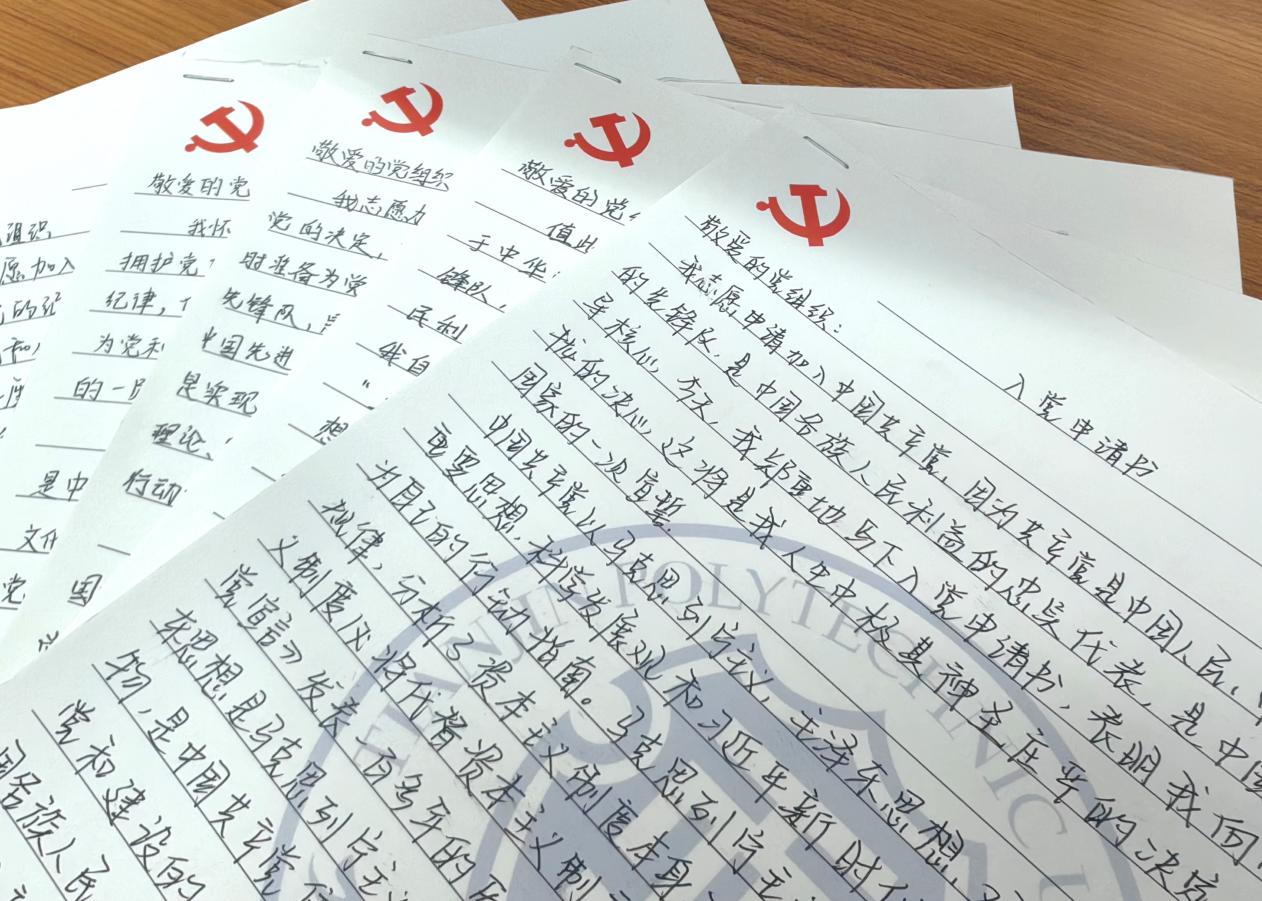 敬爱的党
我怀
拥护党
纪律，
为党和
的一员
是中
文件
党
敬爱的党组织
我志愿加
党的决定，
时准备为党
先锋队，
中国先进
是实现
理论、
行动
国
敬爱的党
值此
于中华
锋队，
民利
我自
想
组织
愿加入
入党申请书
敬爱的党组织：
我志愿申请加入中国共产党，因为共产党是中国人民、
的先锋队，是中国各族人民利益的忠实代表，是中国
导核心，今天，我郑重地写下入党申请书，表明我向
抗的决心，这将是我人生中极其神圣庄严的决定
国家的一次宣誓
中国共产党以马克思列宁主义，毛泽东思想，
重要思想，科学发展观和习近平新时代
为自己的行动指南。马克思列宁主
规律，分析了资本主义制度本身
义制度必将代替资本主义制
党宣言》发表一百多年的历
东思想是马克思列宁主
物，是中国共产党
党和建设的
国各族人民
TIANJIN POLYTECHNIC U